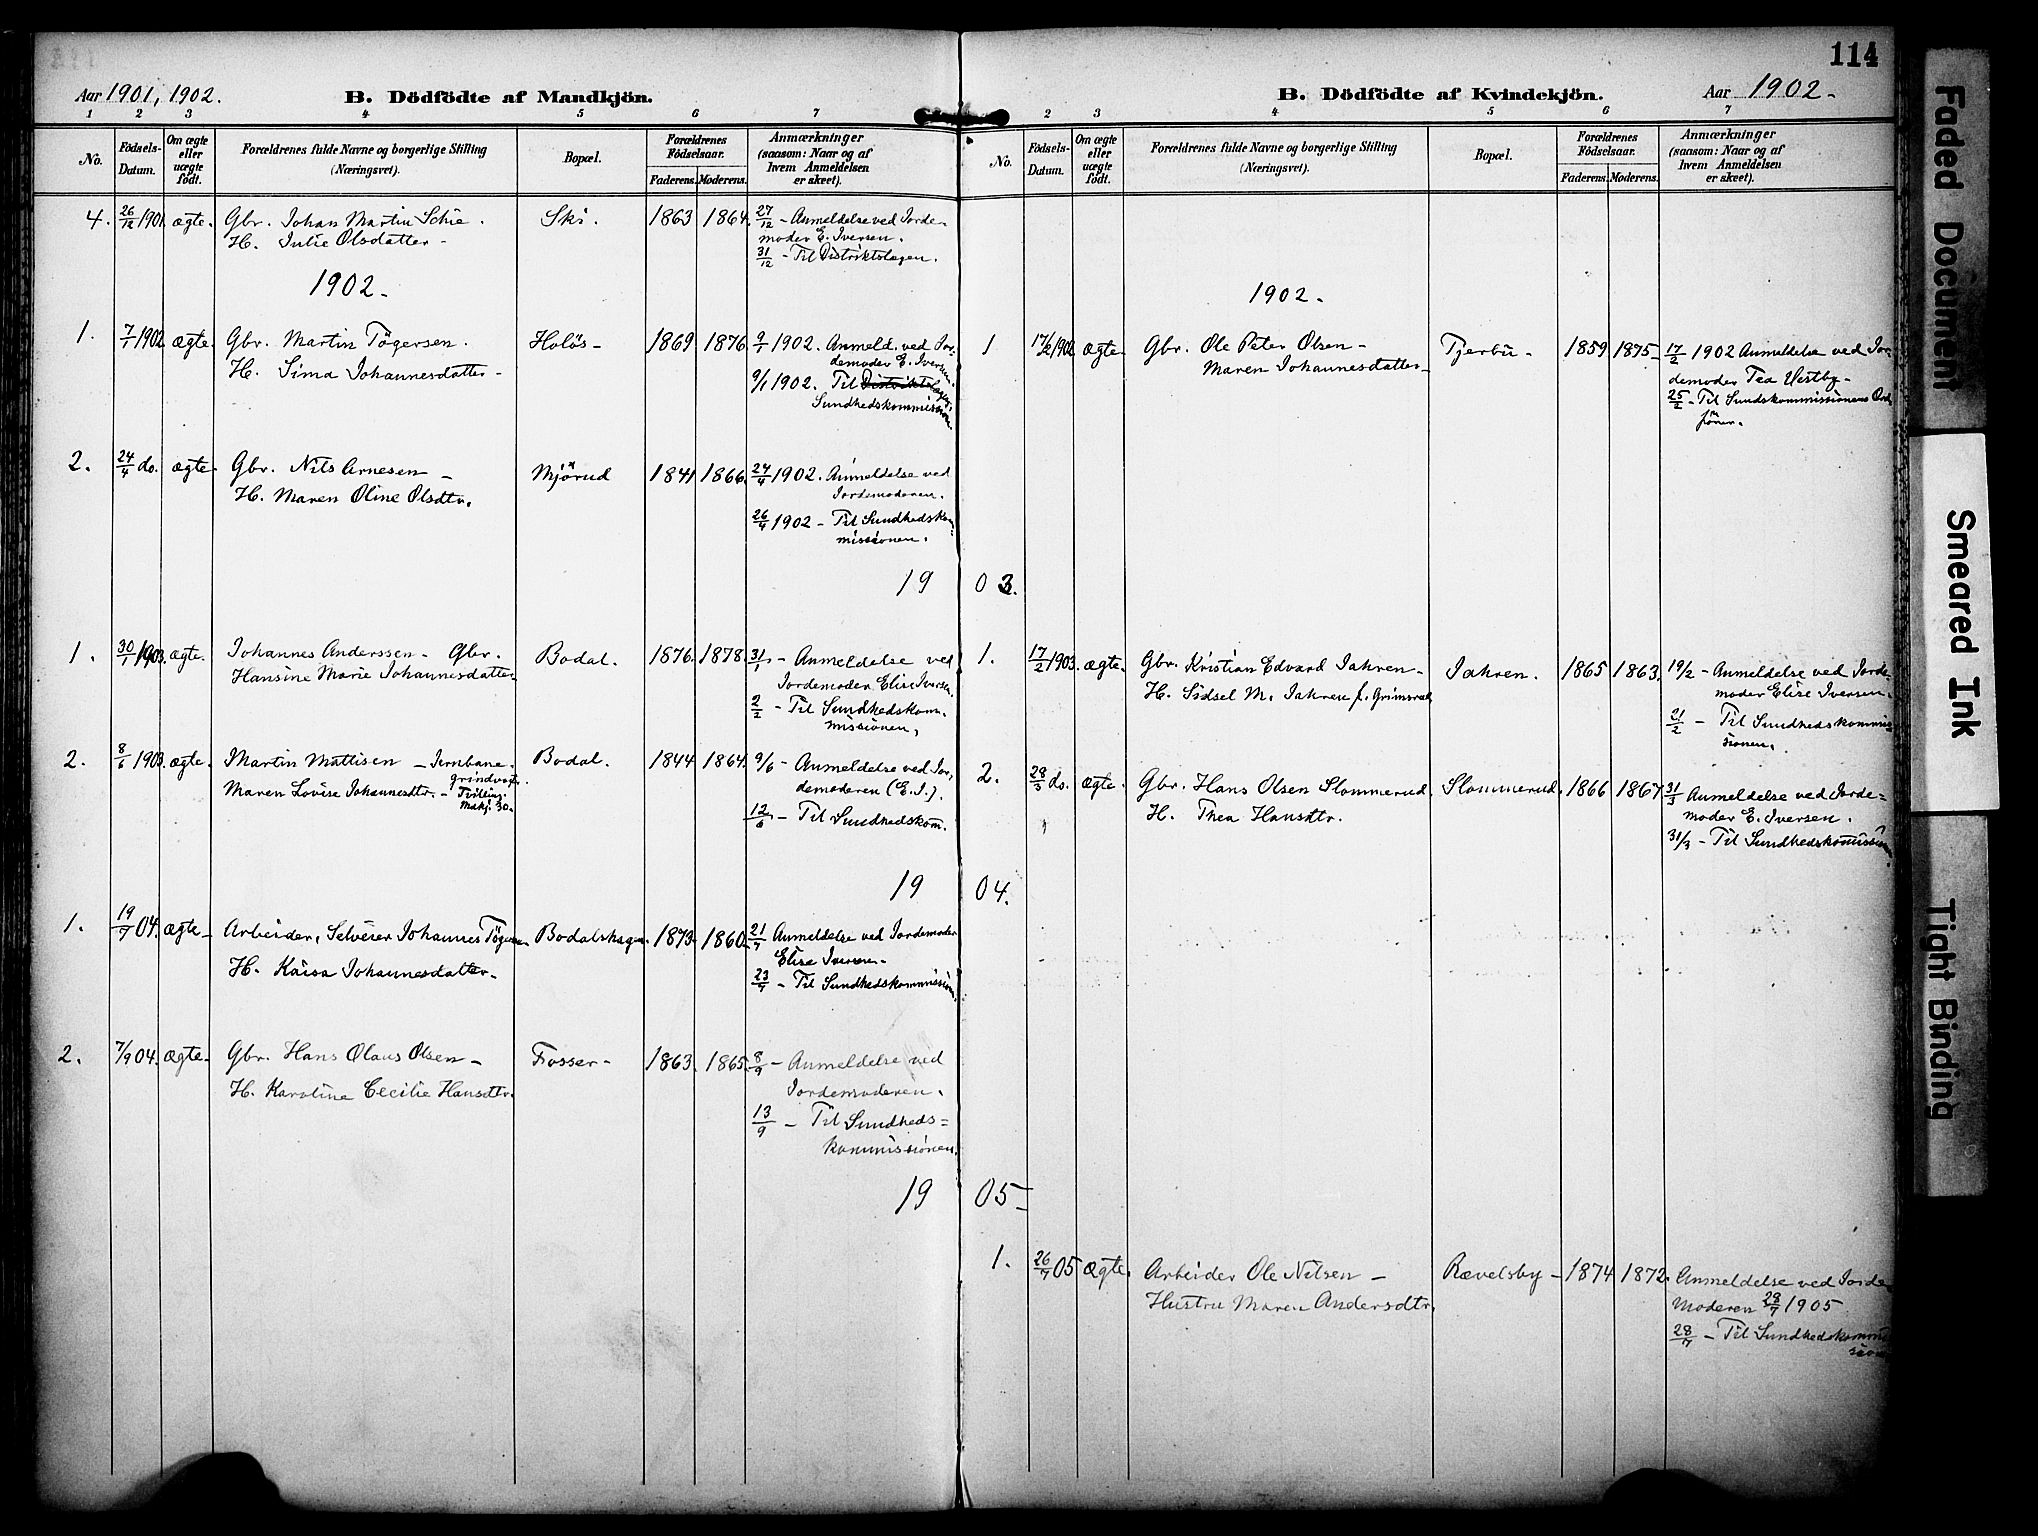 114
Aar 1901, 1902.
B. Dödfödte af Mandkjön.
1 2 3 4 5 6 7
No.
Födsels-
Datum.
Om ægte
eller
uægte
født.
Forældrenes fulde Navne og borgerlige Stilling
(Næringsvei).
Bopæl.
Forældrenes
Födselsaar.
Faderens. Moderens.
Anmærkninger
(saasom: Naar og af
hvem Anmeldelsen
er skeet).
4. 26/12 1901. ægte. Gbr. Johan Martin Schie. Ski. 1863 1864. 27/12 – Anmeldelse ved Jorde-
H. Julie Olsdatter – moder E. Iversen.
31/12 – Til Distriktslægen.
1902.
1. 7/1 1902 ægte. Gbr. Martin Tögersen. Holös – 1869. 1876. 9/1 1902. Anmeld. ved Jor-
H. Sima Johannesdatter – demoder E. Iversen.
9/1 1902. Til Distriktslægen.
Sundhedskommissionen.
2. 24/4 do. ægte. Gbr. Nils Arnesen – Mjørud 1841 1866. 24/4 1902. Anmeldelse ved
H. Maren Oline Olsdtr. Jordemoderen.
26/4 1902 – Til Sundhedskom-
missionen.
1903.
1. 30/1 1903. ægte. Johannes Anderssen – Gbr. Bodal. 1876. 1878. 31/1 – Anmeldelse ved
Hansine Marie Johannesdatter. Jordemoder Elise Iversen.
2/2 – Til Sundhedskom-
missionen.
2. 8/6 1903 ægte. Martin Mattisen – Jernbane- Bodal. 1844 1864. 9/6 – Anmeldelse ved Jor-
grindvogt.
Maren Lovise Johannesdtr. – Tvilling. demoderen (E. I.).
Mskj. 30.
12/6 – Til Sundhedskom.
1904.
1. 19/7 04. ægte – Arbeider, Selveier Johannes Tögersen Bodalshagen. 1873. 1860. 21/7 Anmeldelse ved Jordemoder
H. Kaisa Johannesdatter. Elise Iversen –
23/7 – Til Sundhedskommission.
2. 7/9 04. ægte – Gbr. Hans Olaus Olsen – Fosser – 1863. 1865. 8/9 – Anmeldelse ved
H. Karoline Cecilie Hansdtr. Jordemoderen.
13/9 – Til Sundheds-
kommissionen.
1905
B. Dödfödte af Kvindekjön.
Aar 1902 –
2 3 4 5 6 7
No.
Födsels-
Datum.
Om ægte
eller
uægte
født.
Forældrenes fulde Navne og borgerlige Stilling
(Næringsvei).
Bopæl.
Forældrenes
Födselsaar.
Faderens. Moderens.
Anmærkninger
(saasom: Naar og af
hvem Anmeldelsen
er skeet).
1902.
1 17/2 1902 ægte. Gbr. Ole Peter Olsen – Tjerbu – 1859 1875 – 17/2 1902 Anmeldelse ved Jor-
Maren Johannesdatter – demoder Tea Vestby –
25/2 – Til Sundskommissionens Ord-
förer.
1. 17/2 1903. ægte. Gbr. Kristian Edvard Jahren – Jahren. 1865 1863. 19/2 – Anmeldelse ved Jorde-
H. Sidsel M. Jahren f. Grimsrud moder Elise Iversen.
21/2 – Til Sundhedskommis-
sionen.
2. 28/3 do. ægte. Gbr. Hans Olsen Slommerud. Slommerud. 1866 1867 31/3 Anmeldelse ved Jorde-
H. Thea Hansdtr. moder E. Iversen.
31/3 – Til Sundhedskommission
1. 26/7 05 ægte. Arbeider Ole Nilsen – Rævelsby – 1874 1872. Anmeldelse ved Jorde-
Hustru Maren Andersdtr. moderen 28/7 1905
28/7 – Til Sundhedskommis-
sionen
Faded Document
Smeared Ink
Tight Binding